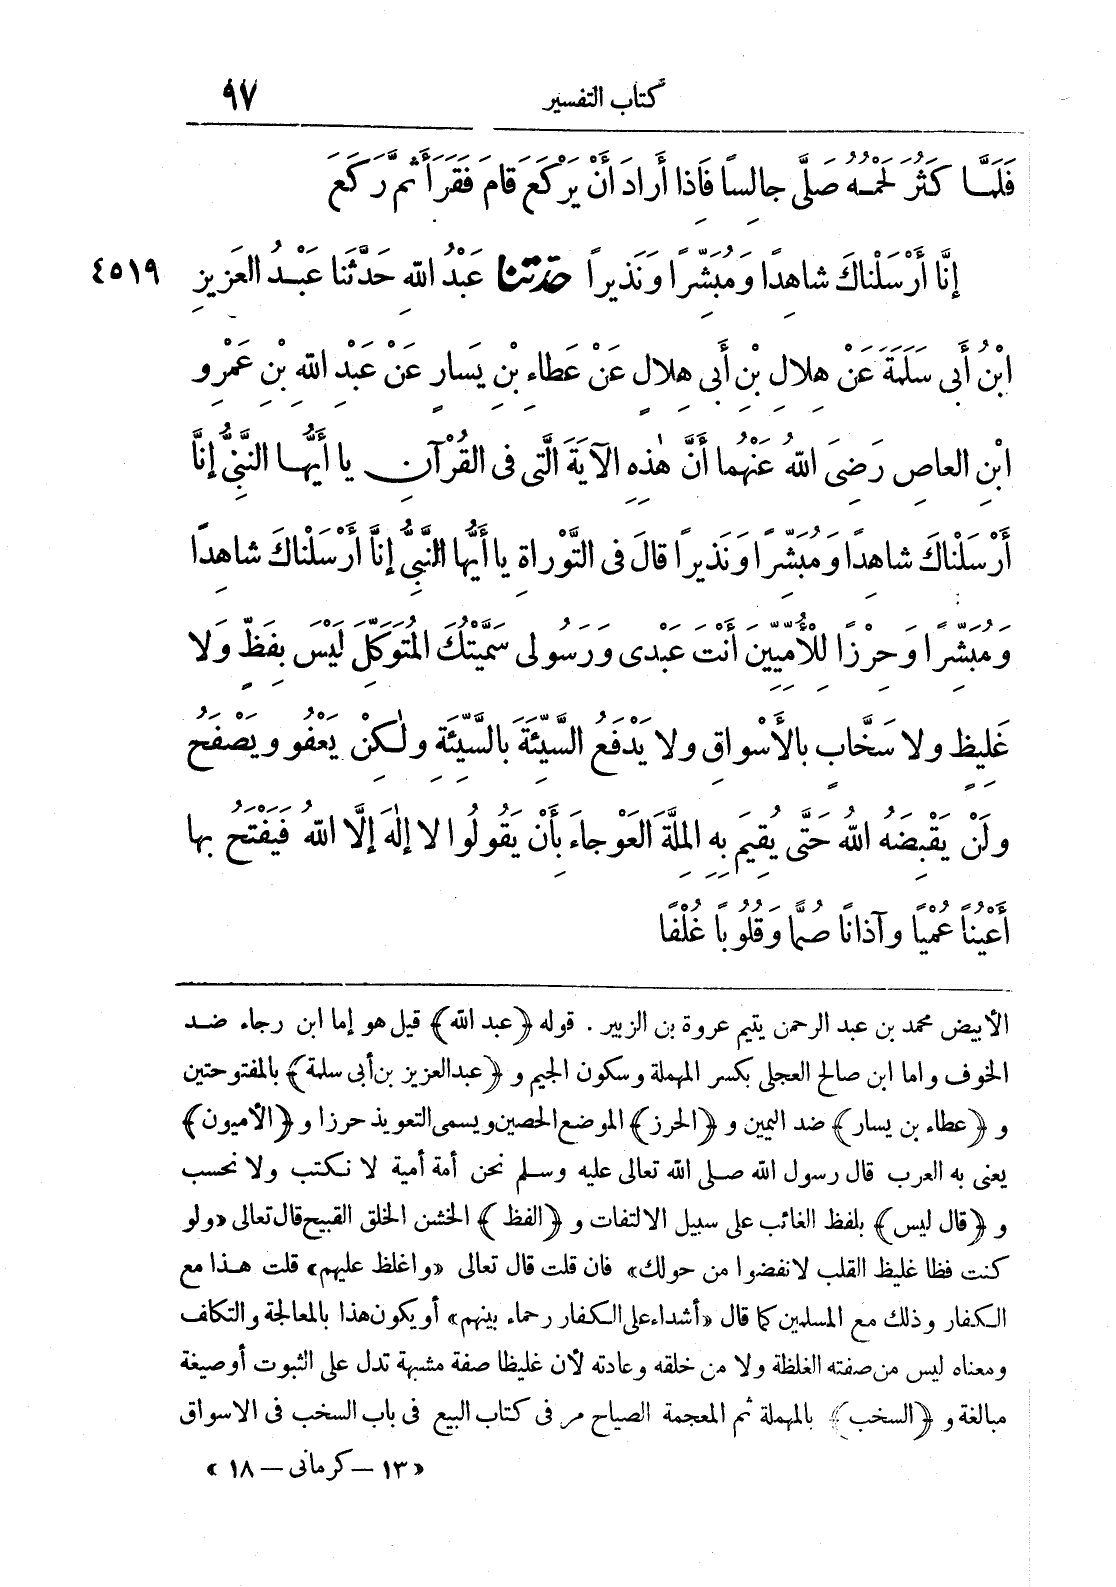 كتاب التفسير ٩٧
فَلَمَّا كَثُرَ لَحْمُهُ صَلَّى جالِسًا فَاِذا أَرادَ أَنْ يَرْكَعَ قامَ فَقَرَأَ ثُمَّ رَكَعَ
إنَّا أَرْسَلْناكَ شاهِدًا وَمُبَشِّرًا وَنَذيرًا حدثنا عَبْدُ اللهِ حَدَّثَنا عَبْدُ العَزيزِ ٤٥١٩
ابْنُ أَبى سَلَمَةَ عَنْ هِلالِ بْنِ أَبى هِلالٍ عَنْ عَطاءِ بْنِ يَسارٍ عَنْ عَبْدِ اللهِ بْنِ عَمْرِو
ابْنِ العاصِ رَضِىَ اللهُ عَنْهُما أَنَّ هٰذِهِ الآيَةَ الَّتى فى القُرْآنِ يا أَيُّها النَّبِىُّ إنَّا
أَرْسَلْناكَ شاهِدًا وَمُبَشِّرًا وَنَذيرًا قالَ فى التَّوْراةِ يا أَيُّها النَّبِىُّ إنَّا أَرْسَلْناكَ شاهِدًا
وَمُبَشِّرًا وَحِرْزًا لِلْأُمِّيِّينَ أَنْتَ عَبْدى وَرَسُولى سَمَّيْتُكَ المُتَوَكِّلَ لَيْسَ بِفَظٍّ وَلا
غَلِيظٍ ولا سَخَّابٍ بالأَسْواقِ ولا يَدْفَعُ السَّيِّئَةَ بالسَّيِّئَةِ ولٰكِنْ يَعْفُو ويَصْفَحُ
ولَنْ يَقْبِضَهُ اللهُ حَتَّى يُقِيمَ بِهِ المِلَّةَ العَوْجاءَ بِأَنْ يَقُولُوا لا إلٰهَ إلَّا اللهُ فَيَفْتَحَ بها
أَعْيُنًا عُمْيًا وآذانًا صُمًّا وَقُلُوبًا غُلْفًا
الأبيض محمد بن عبد الرحمن يتيم عروة بن الزبير . قوله ﴿عبد الله﴾ قيل هو إما ابن رجاء ضد
الخوف واما ابن صالح العجلى بكسر المهملة وسكون الجيم و ﴿عبدالعزيز بن أبى سلمة﴾ بالمفتوحتين
و ﴿عطاء بن يسار﴾ ضد اليمين و ﴿الحرز﴾ الموضع الحصين ويسمى التعويذ حرزا و ﴿الأميون﴾
يعنى به العرب قال رسول الله صلى الله تعالى عليه وسلم نحن أمة أمية لا نكتب ولا نحسب
و ﴿قال ليس﴾ بلفظ الغائب على سبيل الالتفات و ﴿الفظ﴾ الخشن الخلق القبيح قال تعالى «ولو
كنت فظا غليظ القلب لانفضوا من حولك» فان قلت قال تعالى «واغلظ عليهم» قلت هذا مع
الكفار وذلك مع المسلمين كما قال «أشداء على الكفار رحماء بينهم» أو يكون هذا بالمعالجة والتكلف
ومعناه ليس من صفته الغلظة ولا من خلقه وعادته لأن غليظا صفة مشبهة تدل على الثبوت أو صيغة
مبالغة و ﴿السخب﴾ بالمهملة ثم المعجمة الصياح مر فى كتاب البيع فى باب السخب فى الاسواق
«١٣ – كرمانى – ١٨»